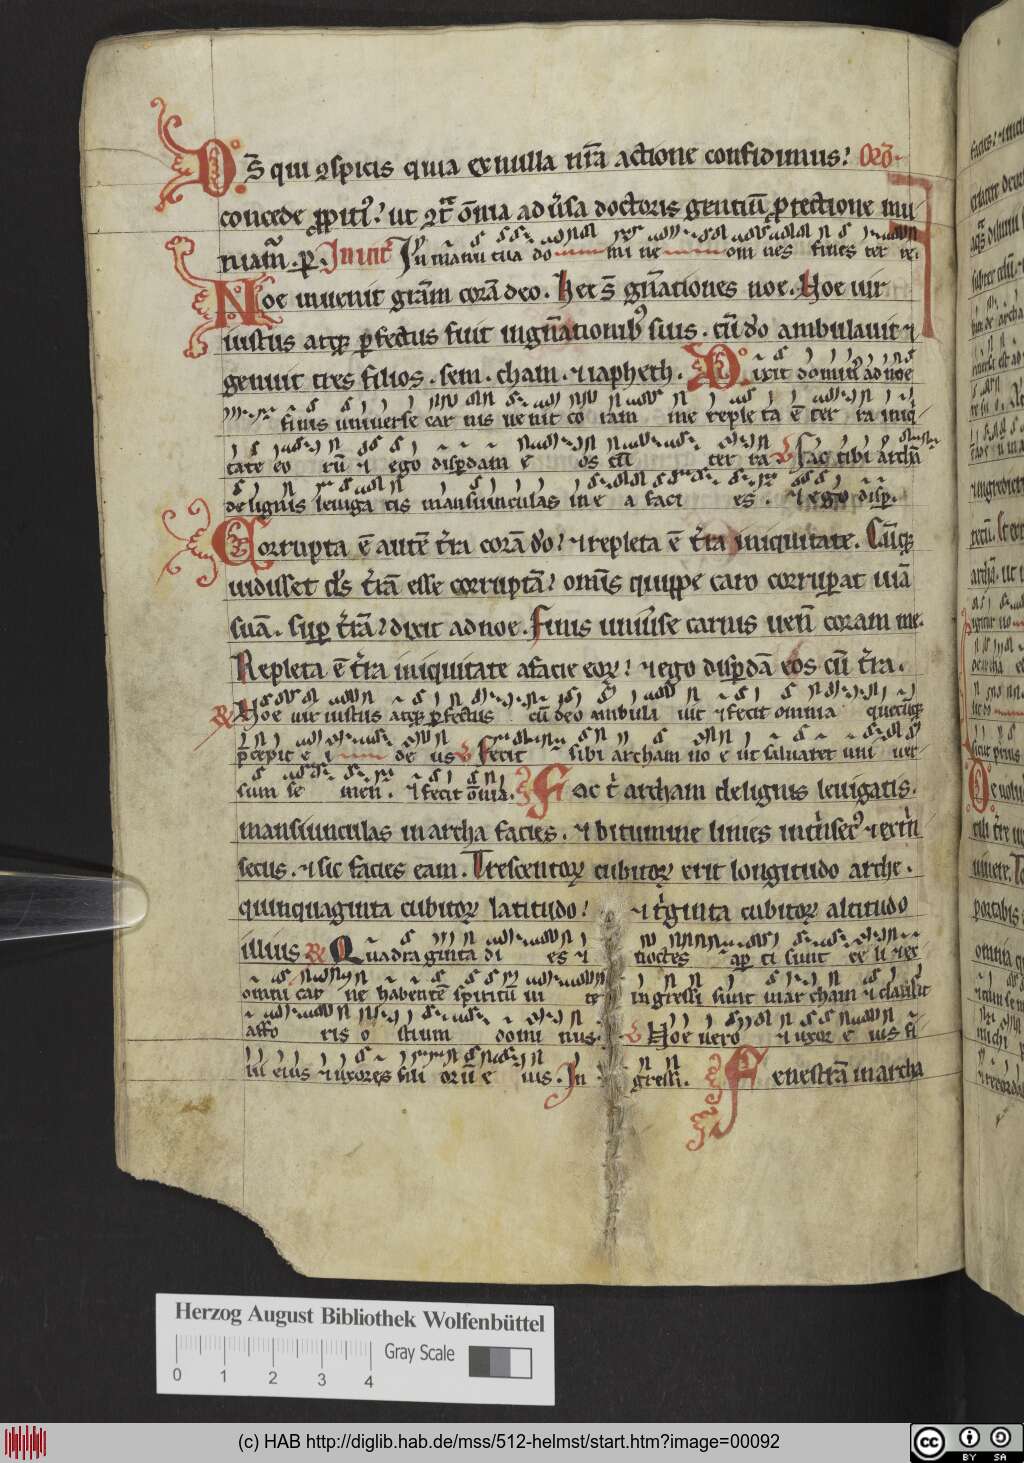 Ds̄ qui ꝯspicis quia ex nulla nr̄a actione confidimus? Orō
concede ꝓpiti⁹? ut ꝯt̄ om̄ia aduͥsa doctoris gentiū ꝓtectione mu
niam̄. ꝑ. Inuit In manu tua domi ne om nes fines ter re.
Noe inuenit grām corā deo. Hec s̄ gn̄ationes noe. Noe uir
iustus atqꝫ ꝑfectus fuit in gn̄ationibꝰ suis. cū dō ambulauit ⁊
genuit tres filios. sem. cham. ⁊ iapheth. Dixit domin⁹ ad noe
finis uniuerse car nis ue nit co ram me reple ta ē ter ra iniq̇
tate eo rū ⁊ ego disꝑdam e os cū ter ra Fac tibi archā
de lignis leuiga tis mansiunculas in e a faci es. ⁊ ego disꝑ.
Corrupta ē autē t̄ra corā dō? ⁊ repleta ē t̄ra iniquitate. Cūqꝫ
uidisset ds̄ t̄rā esse corruptā? om̄is quippe caro corruꝑat uiā
suā. suꝑ t̄rā? dixit ad noe. Finis uniuͥse carnis uen̄ coram me.
Repleta ē t̄ra iniquitate a facie eoꝝ? ⁊ ego disꝑdā eos cū t̄ra.
℟ Noe uir iustus atqꝫ ꝑfectus cū deo ambula uit ⁊ fecit omnia quecūqꝫ
p̄cepit e i de us Fecit sibi archam no e ut saluaret uni uer
sum se men. ⁊ fecit om̄ia. Fac t̄ archam de lignis leuigatis.
mansiunculas in archa facies. ⁊ bitumine linies int̄nsec⁹ ⁊ ext̄n
secus. ⁊ sic facies eam. Trescentoꝝ cubitoꝝ erit longitudo arche.
quinquaginta cubitoꝝ latitudo? ⁊ tͥginta cubitoꝝ altitudo
illius ℟ Quadraginta di es ⁊ noctes aꝑ ti sunt ce li ⁊ ex
omni car ne habentē spiritū ui te ingressi sunt in ar cham ⁊ clausit
a fo ris o stium domi nus. Noe uero ⁊ uxor e ius fi
lii eius ⁊ uxores fili orū e ius. In gressi. Fenestrā in archa
Herzog August Bibliothek Wolfenbüttel
Gray Scale
0 1 2 3 4
(c) HAB http://diglib.hab.de/mss/512-helmst/start.htm?image=00092
cc BY SA